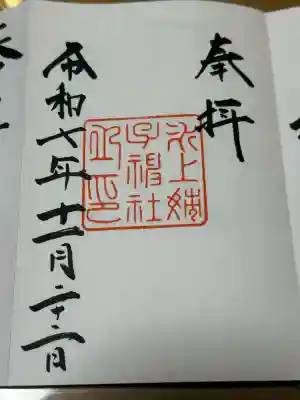 奉拝
氷上姉
子神社
之印
令和七年十一月二十二日